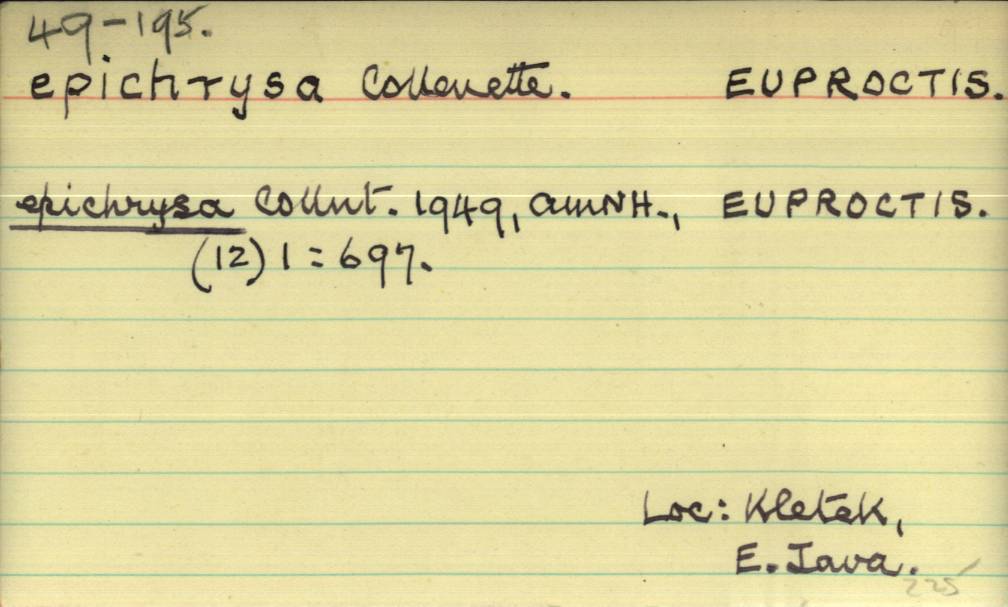 49-195.
epichrysa Collenette. EUPROCTIS.
epichrysa Collnt. 1949, AMNH., EUPROCTIS.
(12) 1 = 697.
Loc: Kletek,
E. Java.
225